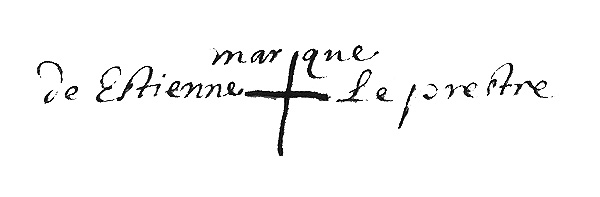 marque
de Estienne Le prestre